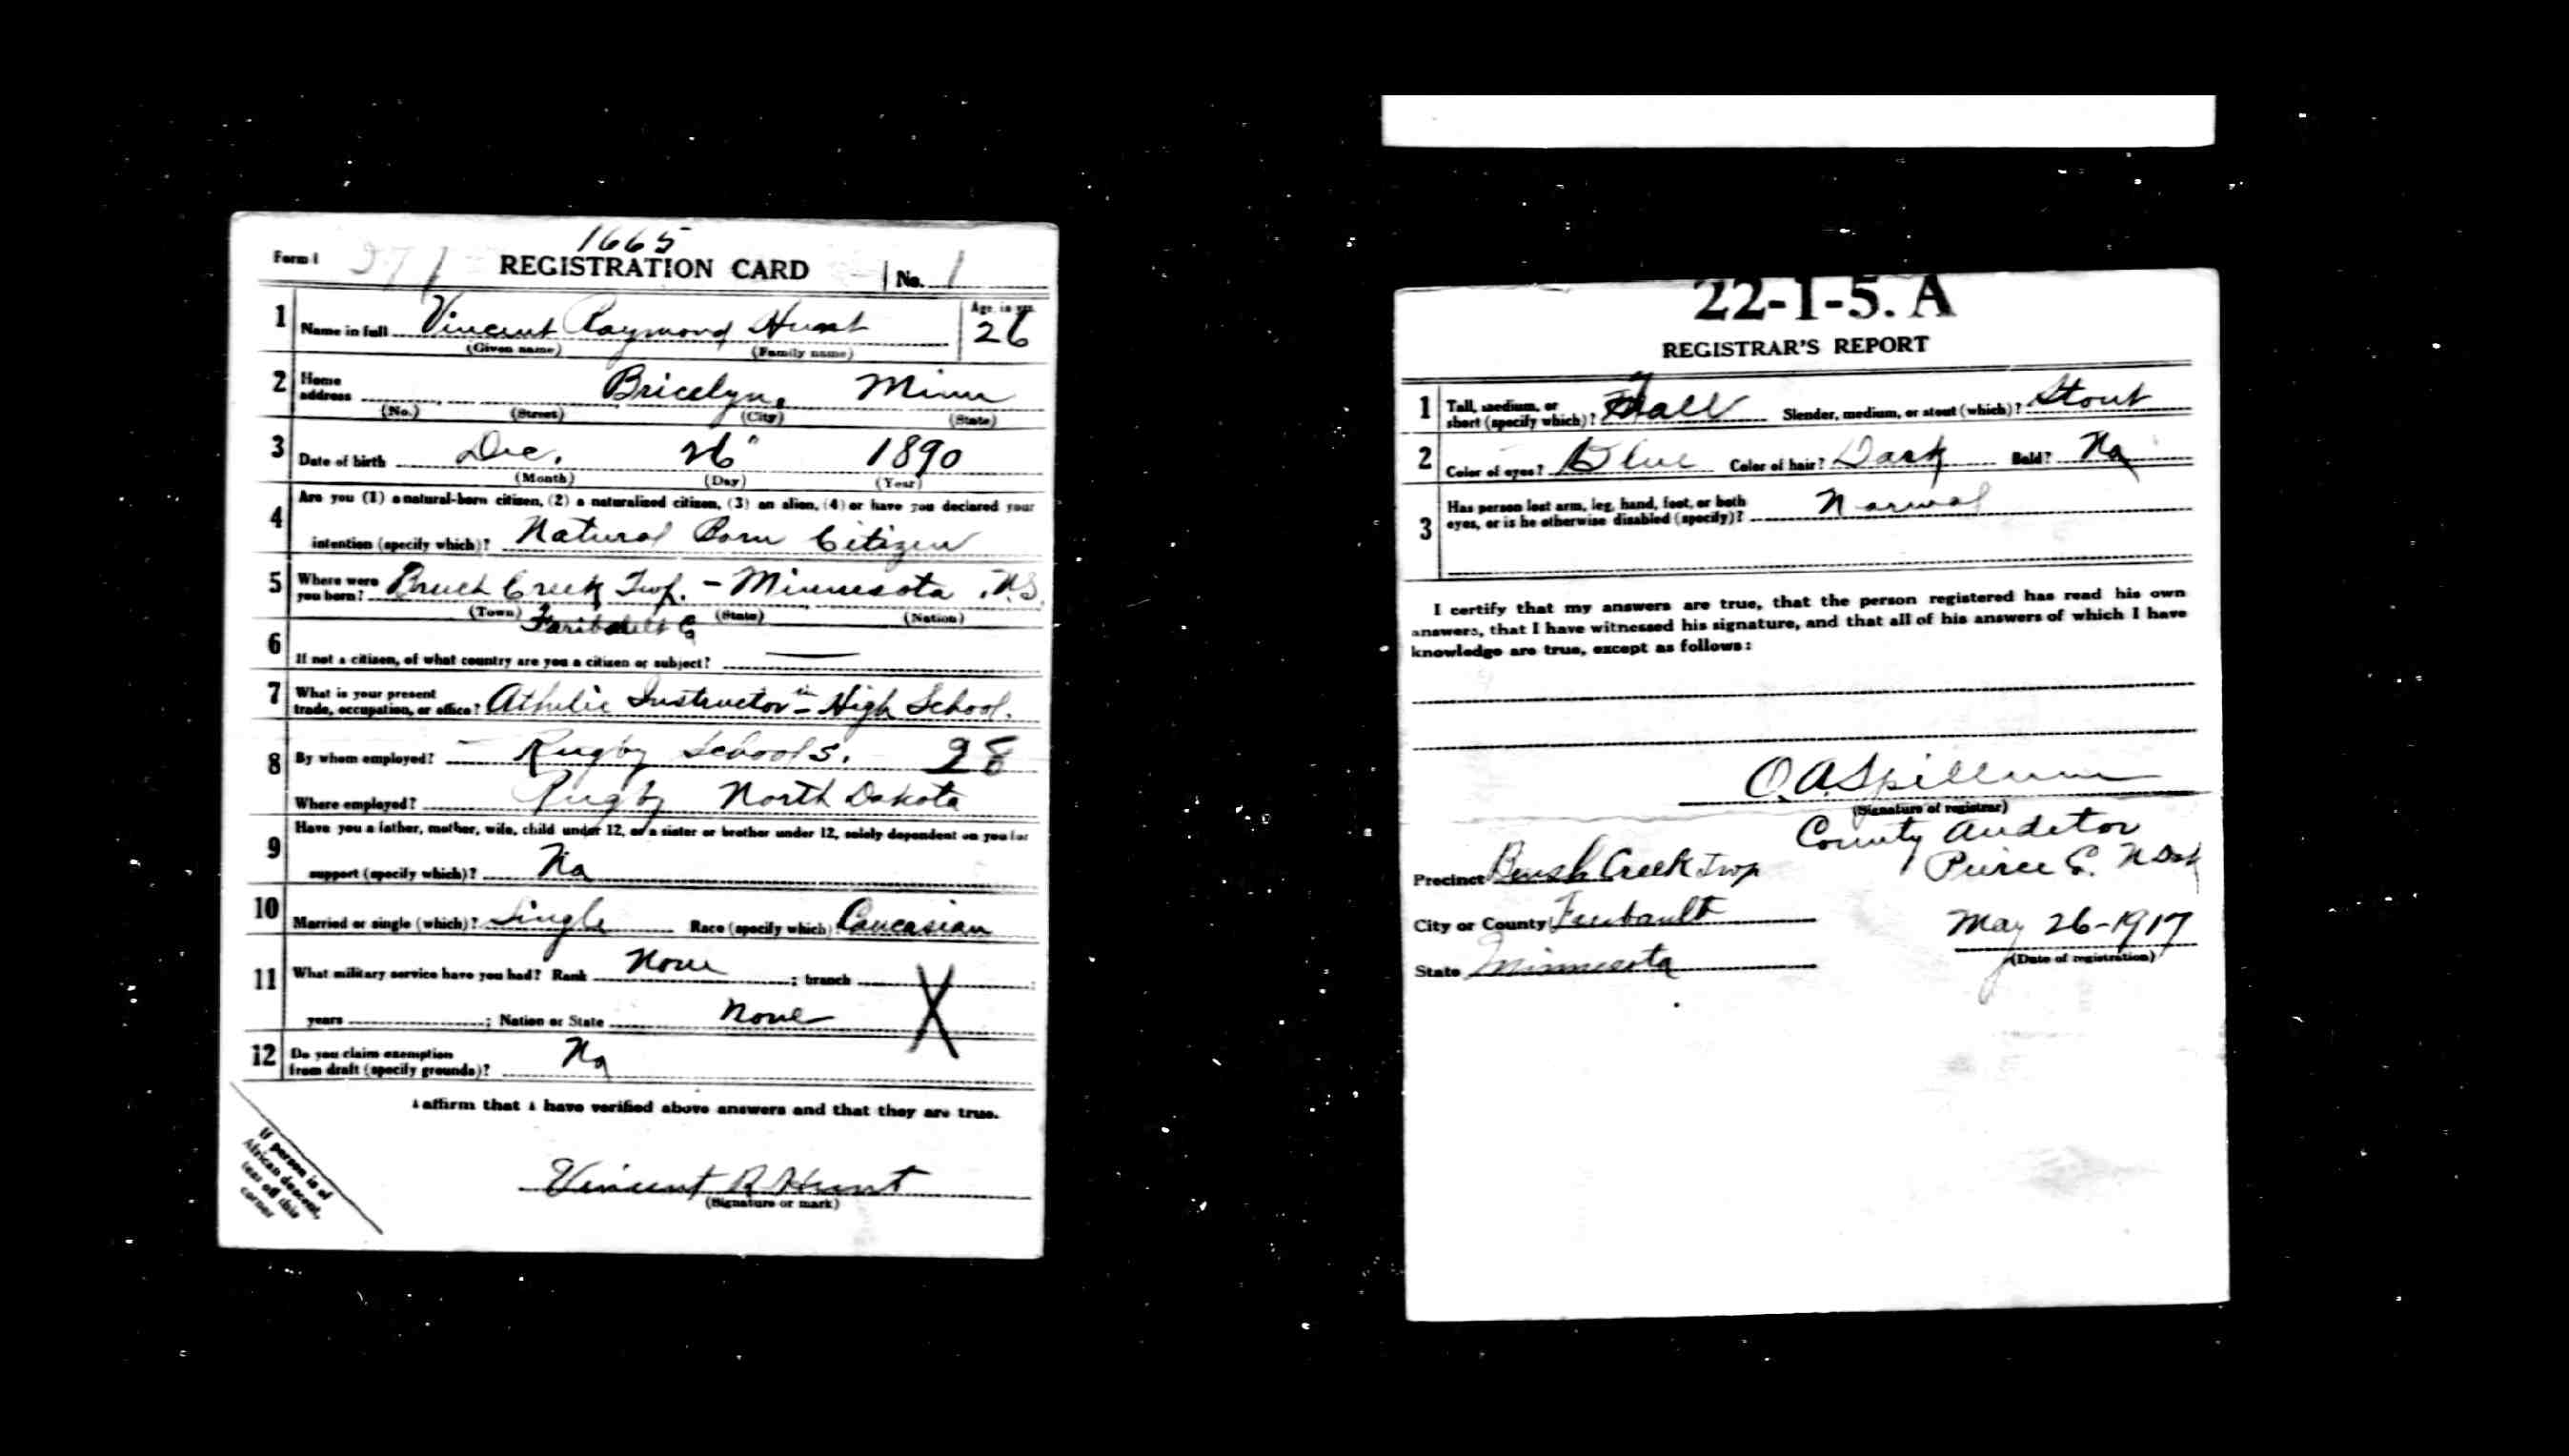 1665
Form 1 REGISTRATION CARD No. 1
1 Name in full Vincent Raymond Hunt Age, in yrs. 26
(Given name) (Family name)
2 Home address Bricelyn, Minn
(No.) (Street) (City) (State)
3 Date of birth Dec. 26" 1890
(Month) (Day) (Year)
4 Are you (1) a natural-born citizen, (2) a naturalized citizen, (3) an alien, (4) or have you declared your
intention (specify which)? Natural Born Citizen
5 Where were you born? Brush Creek Twp. - Minnesota, U.S.
(Town) (State) (Nation)
Faribault Co
6 If not a citizen, of what country are you a citizen or subject? —
7 What is your present trade, occupation, or office? Athletic Instructor in - High School.
8 By whom employed? Rugby Schools. 28
Where employed? Rugby North Dakota
9 Have you a father, mother, wife, child under 12, or a sister or brother under 12, solely dependent on you for
support (specify which)? No
10 Married or single (which)? Single Race (specify which)? Caucasian
11 What military service have you had? Rank None ; branch ;
years ; Nation or State None X
12 Do you claim exemption from draft (specify grounds)? No
I affirm that I have verified above answers and that they are true.
Vincent R Hunt
(Signature or mark)
If person is of
African descent,
tear off this
corner
22-1-5. A
REGISTRAR'S REPORT
1 Tall, medium, or short (specify which)? Tall Slender, medium, or stout (which)? Stout
2 Color of eyes? Blue Color of hair? Dark Bald? No
3 Has person lost arm, leg, hand, foot, or both
eyes, or is he otherwise disabled (specify)? Normal
I certify that my answers are true, that the person registered has read his own
answers, that I have witnessed his signature, and that all of his answers of which I have
knowledge are true, except as follows:
O. A. Spillum
(Signature of registrar)
County Auditor
Pierce Co. N Dak
Precinct Brush Creek Twp
City or County Faribault
State Minnesota
May 26-1917
(Date of registration)